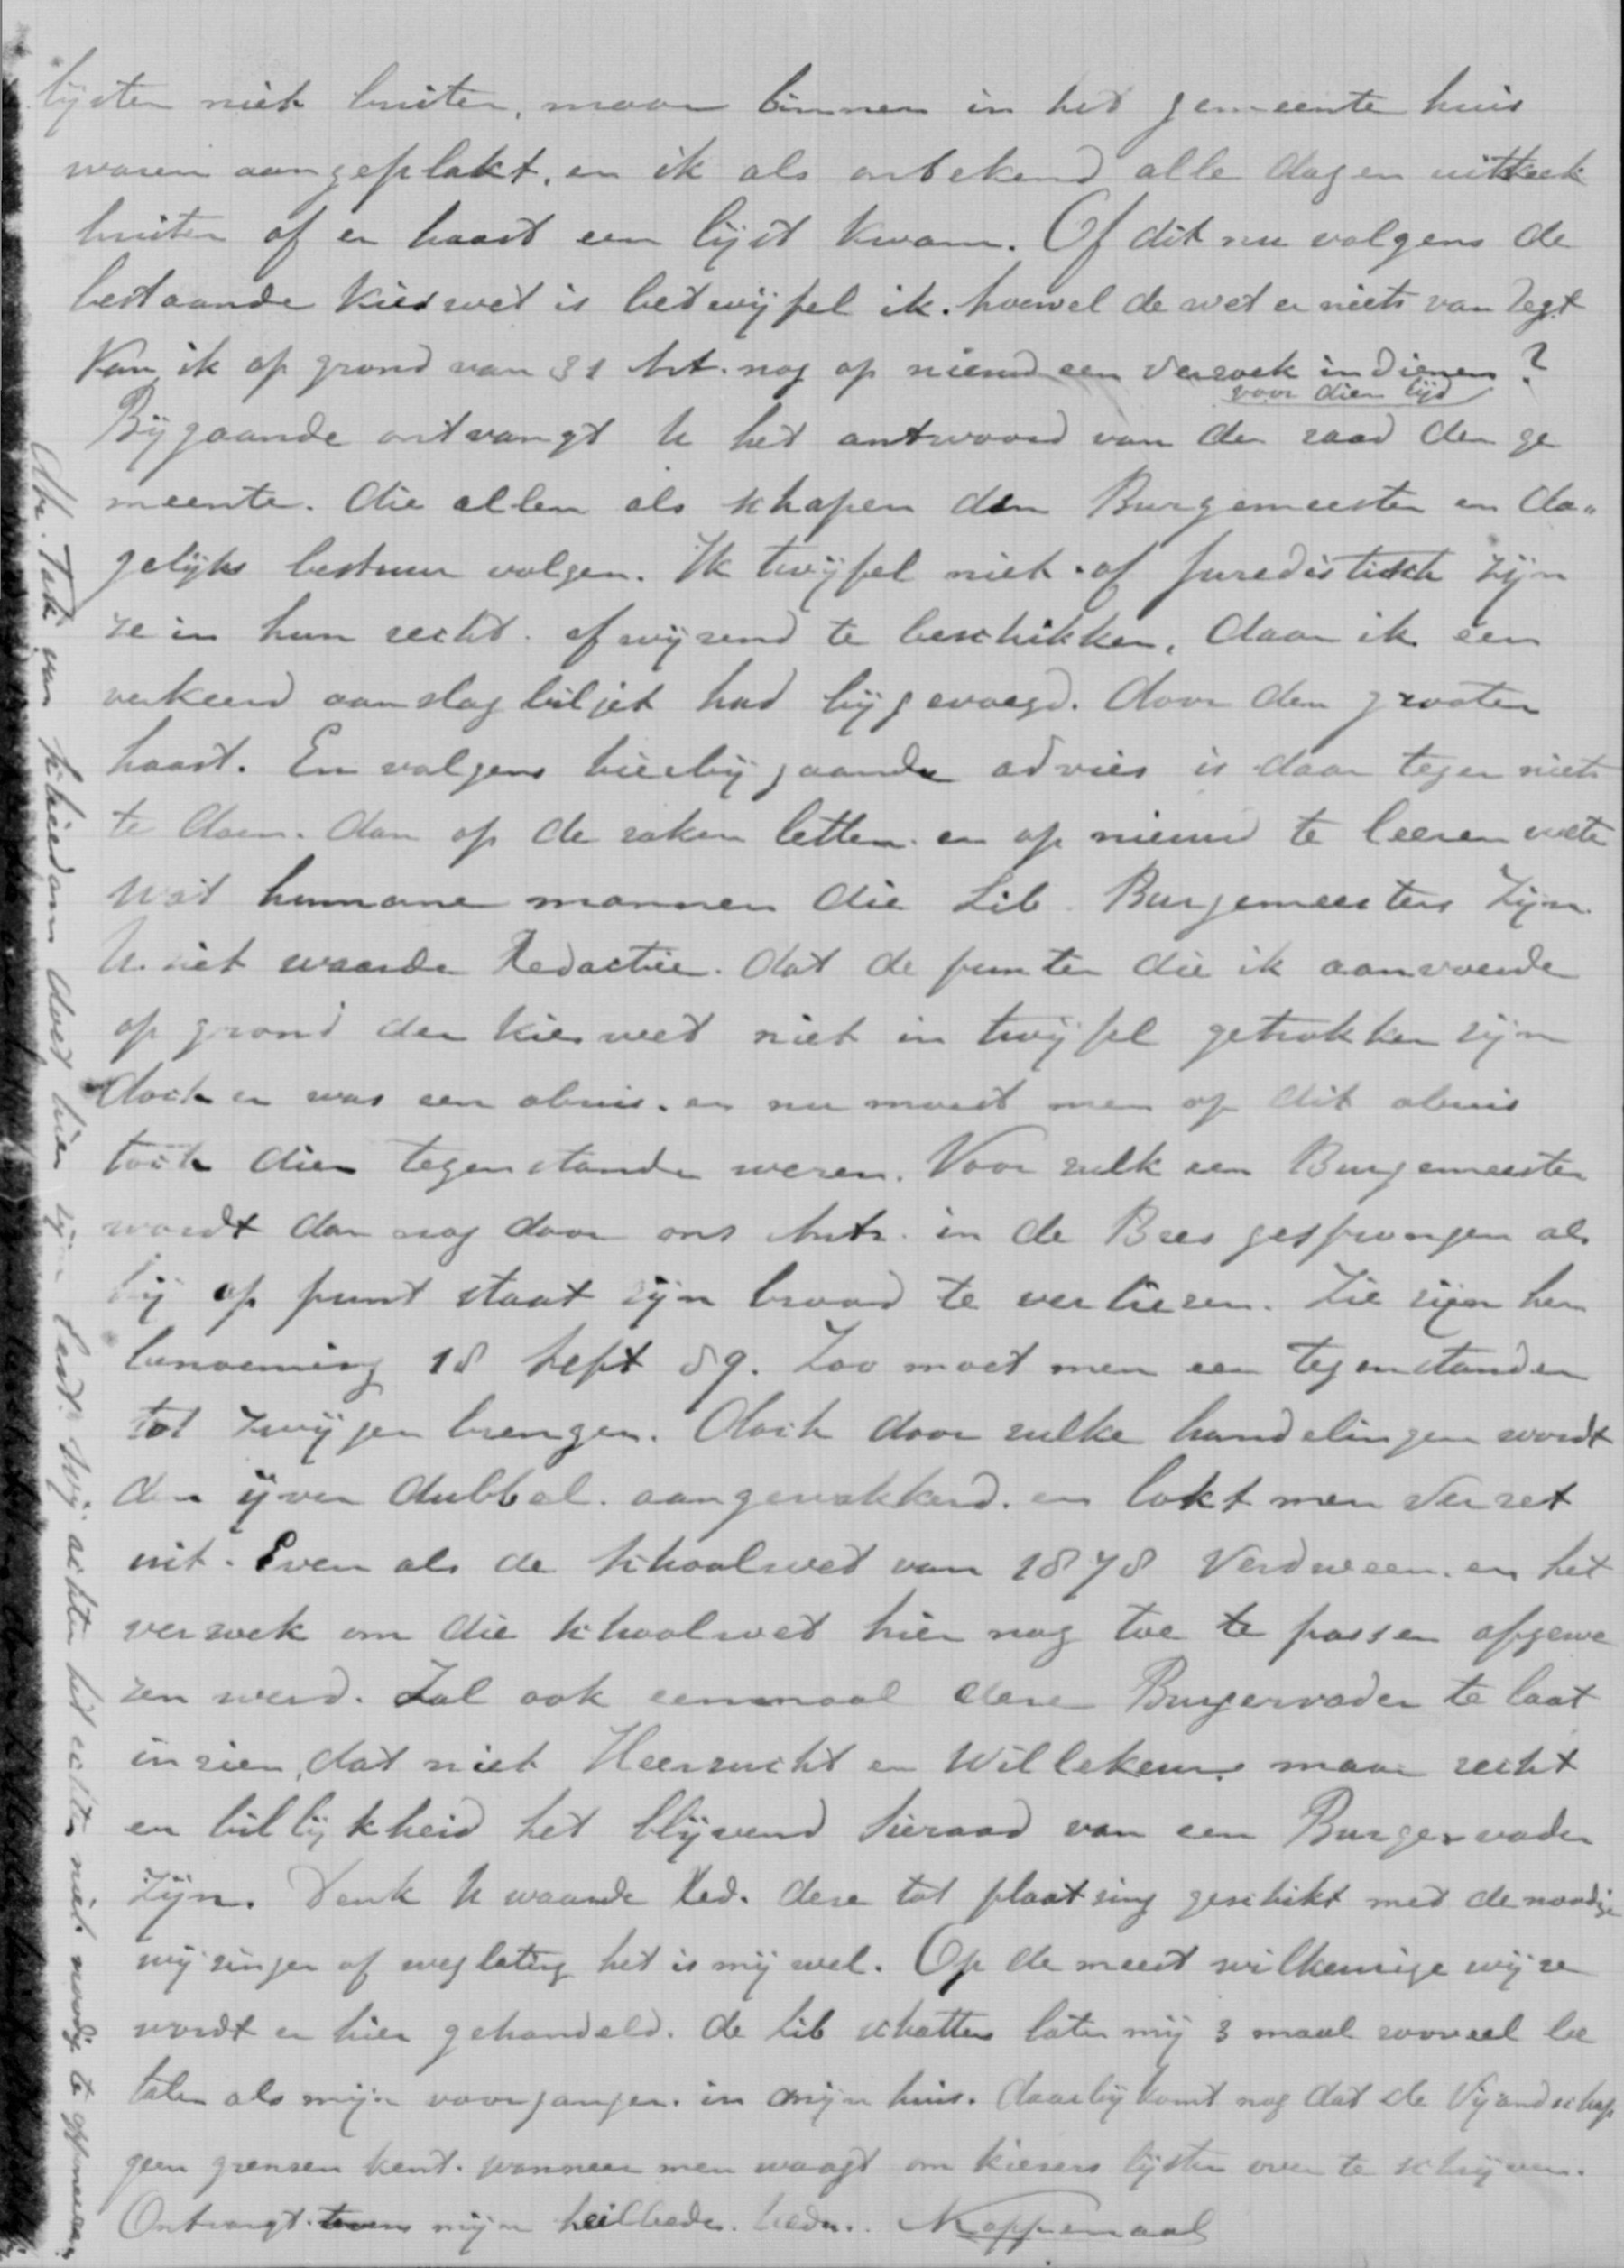 lijsten niet buiten, maar binnen in het gemeente huis
waren aangeplakt, en ik als onbekend alle dagen uitkeek
buiten of er haast een lijst kwam. Of dit nu volgens de
bestaande kieswet is betwijfel ik. hoewel de wet er niets van zegt
Kan ik op grond van 31 Art. nog op nieuw een verzoek indienen?
voor dien tijd
Bijgaande ontvangt U het antwoord van den raad der ge
meente. die allen als schapen den Burgemeester en da„
gelijks bestuur volgen. Ik twijfel niet of Juredistisch zijn
ze in hun recht. afwijzend te beschikken, daar ik een
verkeerd aanslag biljet had bijgevoegd. door den grooten
haast. En volgens hierbijgaande advies is daar tegen niets
te doen. dan op de zaken letten. en op nieuw te leeren weten
wat humane mannen die Lib. Burgemeesters zijn.
U ziet waarde Redactie. dat de punten die ik aanvoerde
op grond der kieswet niet in twijfel getrokken zijn
doch er was een abuis. en nu moest men op dit abuis
toch dien tegenstander weren. Voor zulk een Burgemeester
wordt dan nog door ons Antr. in de Bres gesprongen als
hij op punt staat zijn brood te verliezen. Zie zijn her
benoeming 18 Sept 89. Zoo moet men een tegenstander
tot zwijgen brengen. Doch door zulke handelingen wordt
den ijver dubbel. aangewakkerd. en lokt men verzet
uit. Even als de schoolwet van 1878 verdween. en het
verzoek om die schoolwet hier nog toe te passen afgewe
zen werd. Zal ook eenmaal deze Burgervader te laat
inzien, dat niet Heerzucht en Willekeur maar recht
en billijkheid het blijvend sieraad van een Burgervader
zijn. Denk U waarde Red. deze tot plaatsing geschikt met de noodige
wijzingen of weglating het is mij wel. Op de meest wilkeurige wijze
wordt er hier gehandeld. de lib schatters laten mij 3 maal zooveel be
talen als mijn voorganger. in mijn huis. daarbij komt nog dat de Vijandschap
geen grenzen kent. wanneer men waagt om kiezers lijsten over te schrijven.
Ontvangt tevens mijn heilbede. Uedw.. Koppenaal
Mr. Tak van Schiedam doet hier zijn best. Wij achten het echter niet noodig te opponeeren.